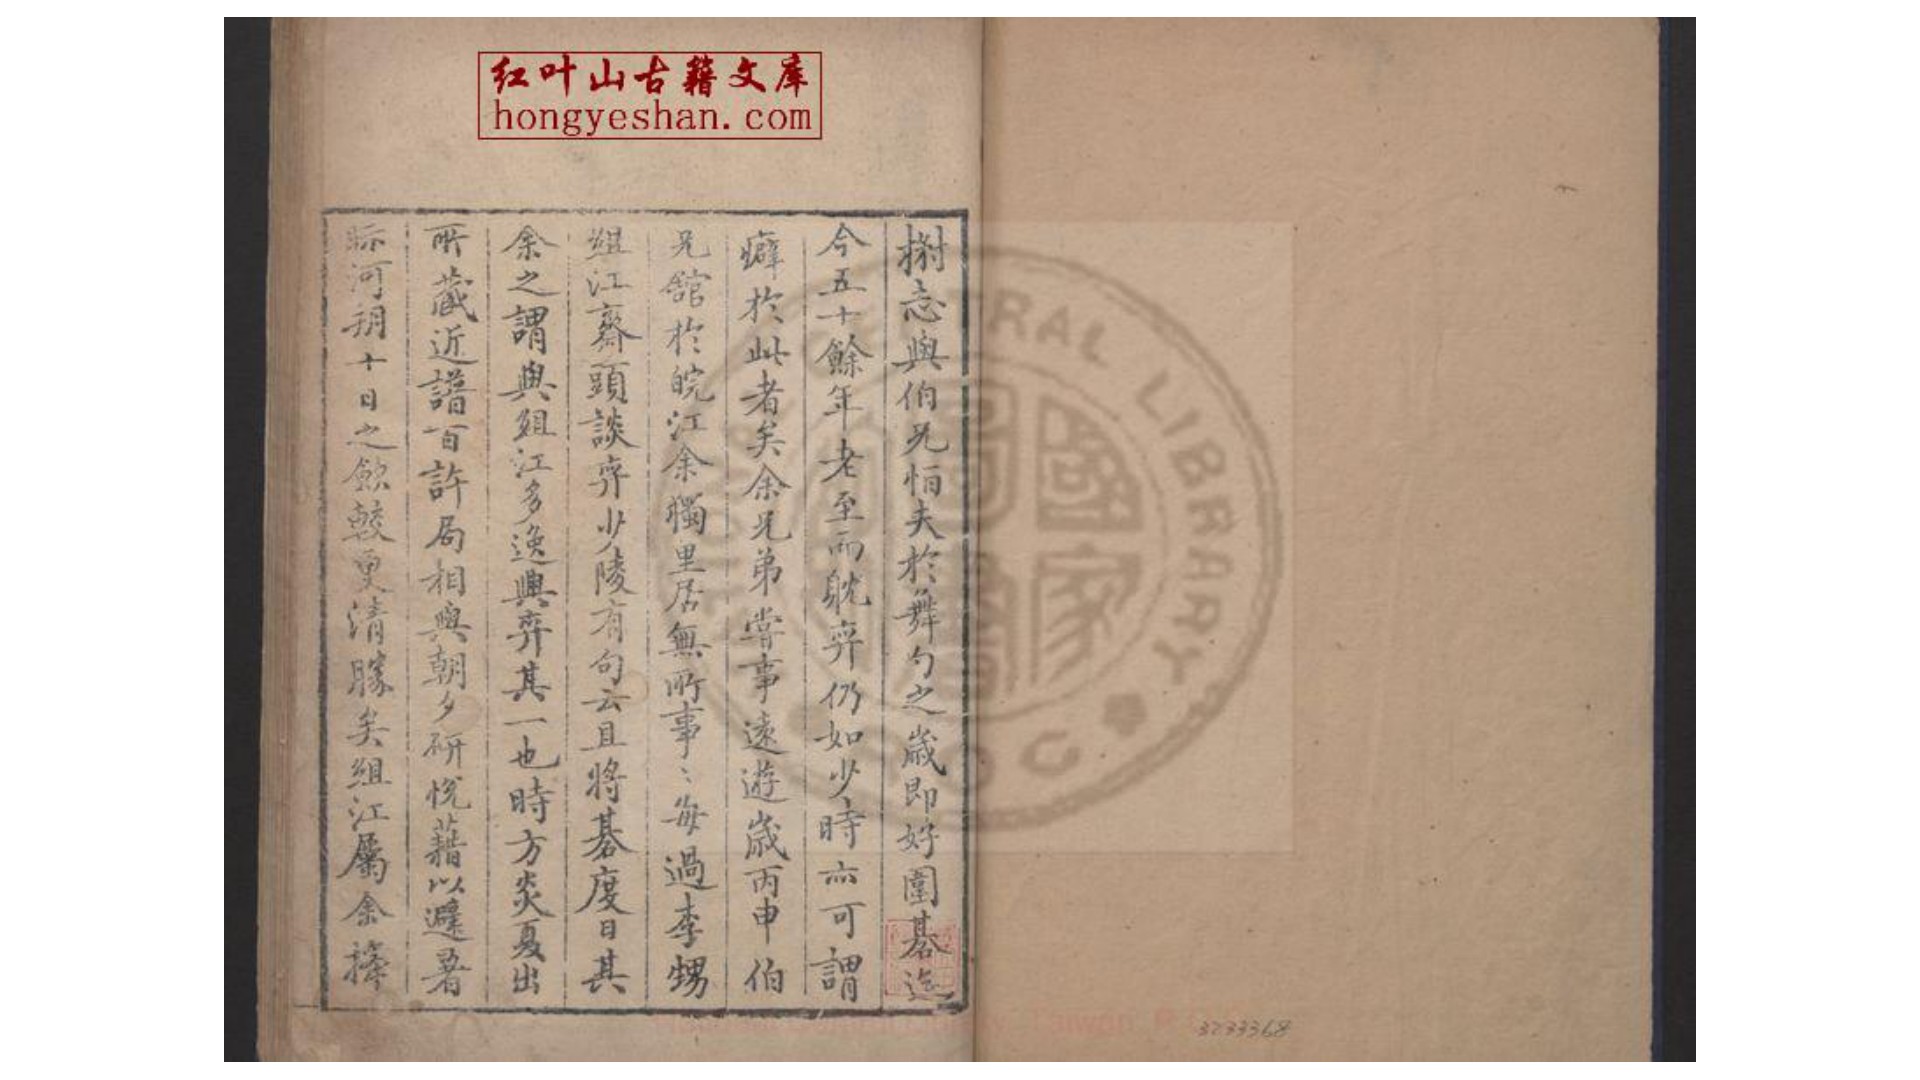 红叶山古籍文库
hongyeshan.com
忘與伯兄怕夫於舞勺之歲即好圍碁迄
今五十餘年老至而躭弈仍如少時亦可謂
癖於此者矣余兄弟嘗事遠遊歲丙申伯
兄舘於皖江余獨里居無所事〻每過李甥
組江齋頭談弈少陵有句云且將碁度日其
余之謂與組江多逸興弈其一也時方炎夏出
所藏近譜百許局相與朝夕研悅藉以避暑
眎河朔十日之飲較更清勝矣組江屬余擇
CENTRAL LIBRARY
ROC
國家圖
3233368